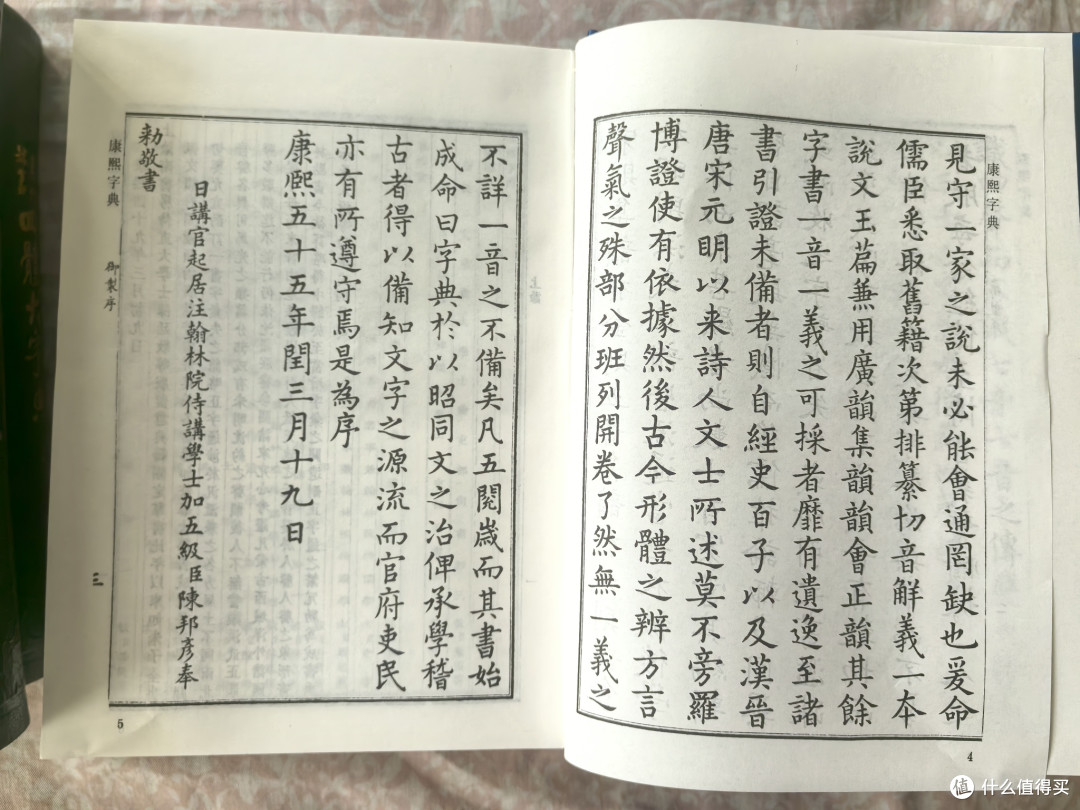 康熙字典
見守一家之說未必能會通罔缺也爰命
儒臣悉取舊籍次第排纂切音解義一本
說文玉篇兼用廣韻集韻韻會正韻其餘
字書一音一義之可採者靡有遺逸至諸
書引證未備者則自經史百子以及漢晉
唐宋元明以来詩人文士所述莫不旁羅
博證使有依據然後古今形體之辨方言
聲氣之殊部分班列開卷了然無一義之
4
不詳一音之不備矣凡五閱歲而其書始
成命曰字典於以昭同文之治俾承學稽
古者得以備知文字之源流而官府吏民
亦有所遵守焉是為序
康熙五十五年閏三月十九日
日講官起居注翰林院侍講學士加五級臣陳邦彥奉
勅敬書
康熙字典
御製序
三
5
值 什么值得买